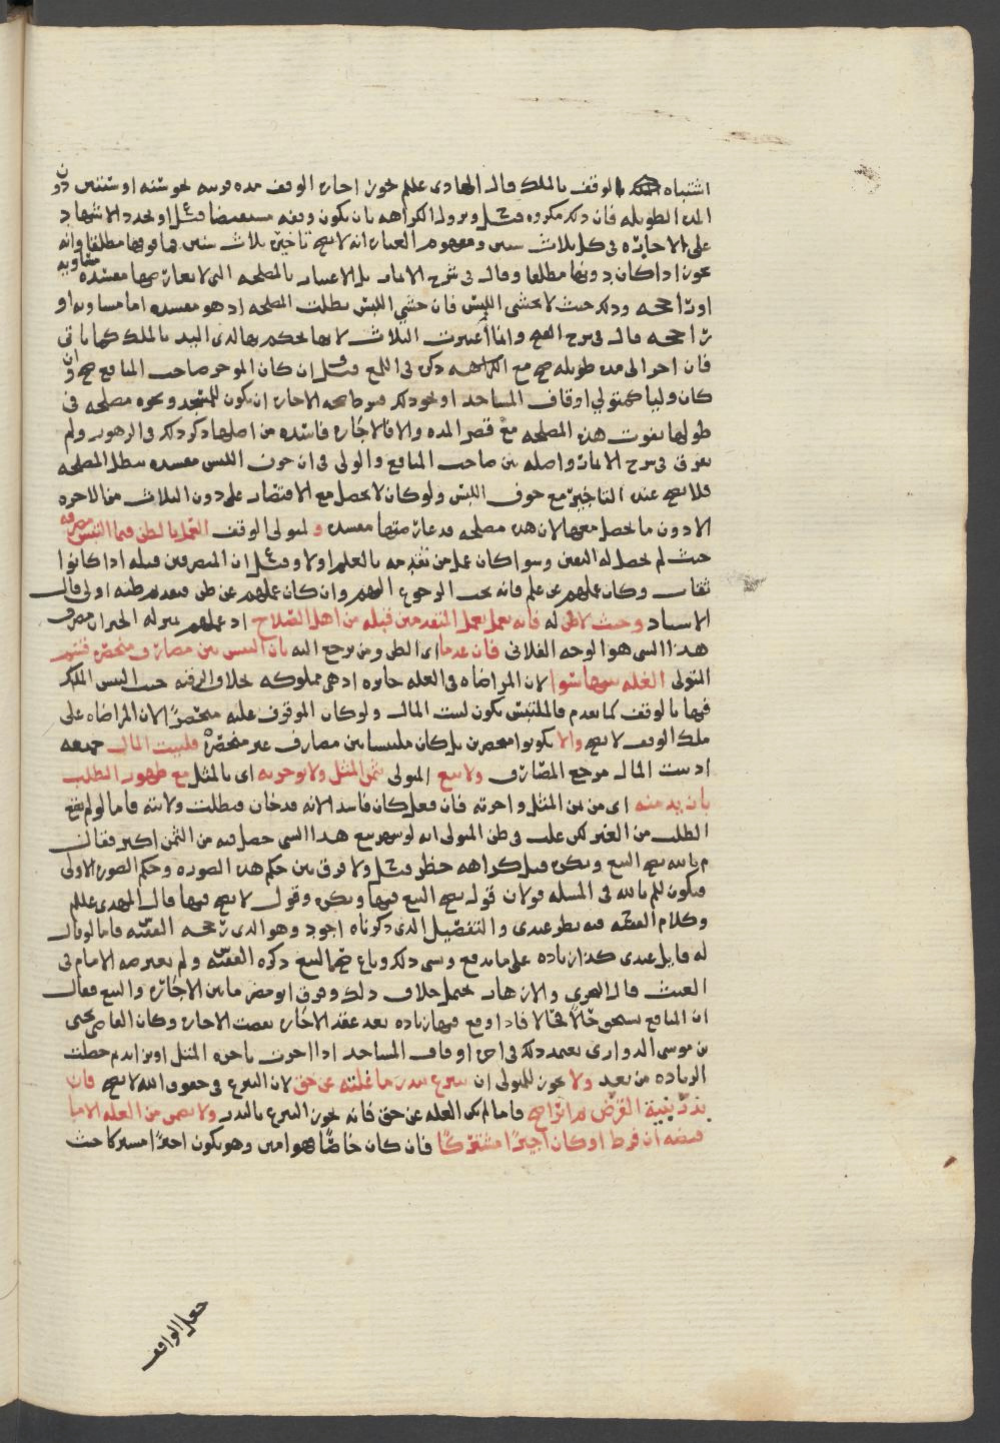 اشتباه الوقف بالملك قال الهادي عللم يجوز اجارة الوقف مده قريبه نحو سنه او سنتين دون
المده الطويله فان ذلك مكروه قيل ويزول الكراهه بان يكون وقفه مستفيضا قيل او يجدد الاشهاد
على الاجازه في كل ثلاث سنين ومفهوم العباره انه لا يصح تاجيره ثلاث سنين فما فوقها مطلقا وانه
يجوز اذا كان دونها مطلقا وقال في شرح الاثمار بل الاعتبار بالمصلحه التي لا يعارضها مفسده مساويه
او راجحه وذلك حيث لا يخشى اللبس فان خشي اللبس بطلت المصلحه اذ هو مفسده اما مساويه او
راجحه قال في شرح الفتح وانما اعتبرت الثلاث لانها يحكم بها لذي اليد بالملك كما ياتي
فان اجر الى مده طويله صح مع الكراهه ذكره في اللمع قيل ان كان الموجر صاحب المنافع صح وان
كان وليا كمتولي اوقاف المساجد او نحو ذلك فشرط صحه الاجاره ان يكون للمسجد ونحوه مصلحه في
طولها يفوت هذه المصلحه مع قصر المده والا فالاجاره فاسده من اصلها ذكر ذلك في الزهور ولم
يفرق في شرح الاثمار واصله بين صاحب المنافع والولي في ان خوف اللبس مفسده يبطل المصلحه
فلا يصح عنده التاجير مع خوف اللبس ولو كان لا يحصل مع الاقتصار على دون الثلاث من الاجره
الا دون ما يحصل معها لان هذه مصلحه قد عارضتها مفسده و لمتولي الوقف العمل بالظن فيما التبس مصرفه
حيث لم يحصل له اليقين وسوا كان عمل من تقدمه بالعلم اولا وقيل ان المتصرفين قبله اذا كانوا
ثقات وكان عملهم عن علم فانه يجب الرجوع اليهم وان كان عملهم عن ظن فتقديم ظنه اولى قال
الاستاد وحيث لا ظن له فانه يعمل بعمل المتقدمين قبله من اهل الصلاح اذ عملهم بمنزله الخبر ان مصرف
هذا الشي هو الوجه الفلاني فان عدما اي الظن ومن يرجع اليه بان التبس بين مصارف منحصره قسم
المتولي الغله بينها سوا لان المراضاه في الغله جايزه اذ هي مملوكه بخلاف الرقبه حيث التبس الملك
فيها بالوقف كما تقدم فالملتبس يكون لبيت المال ولو كان الموقوف عليه منحصرا لان المراضاه على
ملك الوقف لا يصح والا يكونوا منحصرين بل كان ملتبسا بين مصارف غير منحصره فلبيت المال جميعه
اذ بيت المال مرجع المصارف ولا يبع المتولي بثمن المثل ولا يوجر به اي بالمثل مع ظهور الطلب
بازيد منه اي من ثمن المثل واجرته فان فعل كان فاسدا لانه قد خان فبطلت ولايته فاما لو لم يقع
الطلب من الغير لكن غلب في ظن المتولي انه لو شهر بيع هذا الشي حصل فيه من الثمن اكثر فقال
م بالله يصح البيع ويكره قيل كراهه حظر قيل ولا فرق بين حكم هذه الصوره وحكم الصوره الاولى
فيكون للم بالله في المسله قولان قول يصح البيع فيها ويكره وقول لا يصح فيها قال المهدي عللم
وكلام الفقيه فيه نظر عندي والتفصيل الذي ذكرناه اجود وهو الذي رجحه الفقيه فاما لو قال
له قايل عندي كذا زياده على ما يدفع ونسي ذلك وباع صح البيع ذكره الفقيه ولم يعترضه الامام في
الغيث قال النجري والازهار يحتمل خلاف ذلك وفرق ابو مضر ما بين الاجاره والبيع فقال
ان المنافع يستحق حالا فحالا فاذا وقع فيها زياده بعد عقد الاجاره نقضت الاجاره وكان القاضي يحيى
بن موسى الدواري يعتمد ذلك في اوقاف المساجد اذا اجرت باجره المثل او بزايد ثم حصلت
الزياده من بعيد ولا يجوز للمتولي ان يتبرع ببذر ما غلته عن حق لان التبرع في حقوق الله لا يصح فان
بذر بنية القرض ثم ابرا صح فاما لم يكن الغله عن حق فانه يجوز التبرع بالبذر ولا يضمن من الغله الا ما
قبضه ان فرط او كان اجيرا مشتركا فان كان خاصا فهو امين وهو يكون اجيرا مشتركا حيث
جعل الواقف